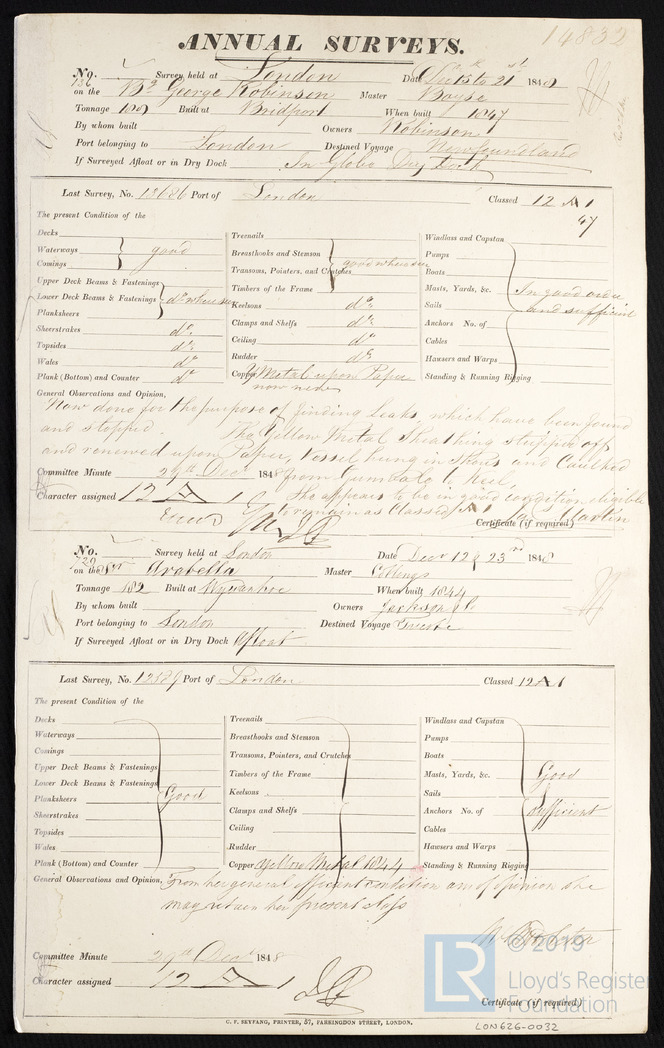 14832
ANNUAL SURVEYS.
No. 736 Survey held at London Date Decr 15 to 21st 1848
on the Bq George Robinson Master Bayse
Tonnage 199 Built at Bridport When built 1847
By whom built Owners Robinson
Port belonging to London Destined Voyage Newfoundland
If Surveyed Afloat or in Dry Dock In Globe Dry Dock
Last Survey, No. 13686 Port of London Classed 12 A 1
47
The present Condition of the
Decks
Waterways good
Comings
Upper Deck Beams & Fastenings
Lower Deck Beams & Fastenings do where seen
Planksheers
Sheerstrakes do
Topsides do
Wales do
Plank (Bottom) and Counter do
Treenails
Breasthooks and Stemson good where seen
Transoms, Pointers, and Crutches
Timbers of the Frame
Keelsons do
Clamps and Shelfs do
Ceiling do
Rudder do
Copper Y Metal upon Paper
now new
Windlass and Capstan
Pumps
Boats
Masts, Yards, &c. In good order
Sails and sufficient
Anchors No. of
Cables
Hausers and Warps
Standing & Running Rigging
General Observations and Opinion,
Now done for the purpose of finding Leaks, which have been found
and stopped. The Yellow Metal Sheathing stripped off
and renewed upon Paper, Vessel hung in Shores and Caulked
from Gunwale to Keel,
Committee Minute 29th Decr 1848
She appears to be in good condition eligible
Character assigned 12 A 1
to remain as Classed A 1
Martin
Certificate (if required)
No. 720 Survey held at London Date Decr 12 & 23rd 1848
on the Sr Arabella Master Collings
Tonnage 132 Built at Wyvanhoe When built 1844
By whom built Owners Jackson & Co
Port belonging to London Destined Voyage
If Surveyed Afloat or in Dry Dock Afloat
Last Survey, No. 12589 Port of London Classed 12 A 1
The present Condition of the
Decks
Waterways
Comings
Upper Deck Beams & Fastenings
Lower Deck Beams & Fastenings
Planksheers Good
Sheerstrakes
Topsides
Wales
Plank (Bottom) and Counter
Treenails
Breasthooks and Stemson
Transoms, Pointers, and Crutches
Timbers of the Frame
Keelsons
Clamps and Shelfs
Ceiling
Rudder
Copper Yellow Metal 1844
Windlass and Capstan
Pumps
Boats
Masts, Yards, &c. Good
Sails
Anchors No. of Sufficient
Cables
Hausers and Warps
Standing & Running Rigging
General Observations and Opinion, From her general efficient condition am of opinion she
may retain her present class
Committee Minute 29th Decr 1848
Character assigned 12 A 1
Certificate (if required)
C. F. SEYFANG, PRINTER, 57, FARRINGDON STREET, LONDON.
LR © 2019
Lloyd's Register
Foundation
LON626-0032